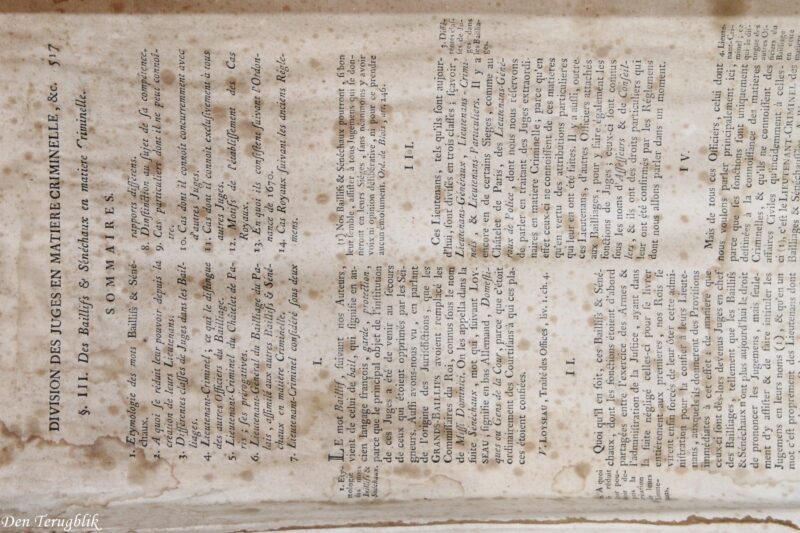 DIVISION DES JUGES EN MATIERE CRIMINELLE, &c. 517
§. III. Des Baillifs & Sénéchaux en matiere Criminelle.
SOMMAIRES.
1. Etymologie des mots Baillifs & Séné-
chaux.
2. A quoi se réduit leur pouvoir depuis la
création de leurs Lieutenans.
3. Différentes classes de Juges dans les Bail-
liages.
4. Lieutenant-Criminel; ce qui le distingue
des autres Officiers du Bailliage.
5. Lieutenant-Criminel du Châtelet de Pa-
ris, ses prérogatives.
6. Lieutenant-Général du Bailliage du Pa-
lais, assimilé aux autres Baillifs & Séné-
chaux en matiere Criminelle.
7. Lieutenant-Criminel considéré sous deux
rapports différens.
8. Distinction au sujet de sa compétence.
9. Cas particulier dont il ne peut connoî-
tre.
10. Cas dont il connoît concurremment avec
d'autres Juges.
11. Cas dont il connoît exclusivement à tous
autres Juges.
12. Motifs de l'établissement des Cas
Royaux.
13. En quoi ils consistent suivant l'Ordon-
nance de 1670.
14. Cas Royaux suivant les anciens Régle-
mens.
I.
LE mot Bailliff, suivant nos Auteurs,
vient de celui de bail, qui signifie en an-
cien langage françois, garde, protection,
parce que le principal objet de l'institution
de ces Juges a été de venir au secours
de ceux qui étoient opprimés par les Sei-
gneurs. Aussi avons-nous vu, en parlant
de l'origine des Jurisdictions, que les
GRANDS-BAILLIFS avoient remplacé les
Commissaires du Roi, connus sous le nom
de Missi Dominici. On les appella dans la
suite Sénéchaux; mot qui, suivant LOY-
SEAU, signifie en bas Allemand, Domesti-
ques ou Gens de la Cour, parce que c'étoit
ordinairement des Courtisans à qui ces pla-
ces étoient confiées.
V. LOYSEAU, Traité des Offices, liv. 1. ch. 4.
II.
Quoi qu'il en soit, ces Baillifs & Séné-
chaux, dont les fonctions étoient d'abord
partagées entre l'exercice des Armes &
l'administration de la Justice, ayant dans
la suite négligé celles-ci pour se livrer
entierement aux premieres, nos Rois se
virent enfin forcés de leur ôter cette admi-
nistration pour la confier à leurs Lieute-
nans, auxquels ils donnerent des Provisions
immédiates à cet effet: de maniere que
ceux-ci sont dès-lors devenus Juges en chef
des Bailliages; tellement que les Baillifs
& Sénéchaux n'ont plus aujourd'hui le droit
de prononcer les Jugemens, mais seule-
ment d'y assister & de faire intituler les
Jugemens en leurs noms (1), & qu'en un
mot c'est proprement
(1) Nos Baillifs & Sénéchaux pourront, si bon
leur semble, assister à tous Jugemens qui se don-
neront en leurs Sieges, sans néanmoins y avoir
voix ni opinion délibérative, ni pour ce prendre
aucun émolument. Ord. de Blois, art. 246.
III.
Ces Lieutenans, tels qu'ils sont aujour-
d'hui, sont divisés en trois classes; sçavoir,
Lieutenans-Généraux, Lieutenans-Crimi-
nels & Lieutenans-Particuliers. Il y a
encore en de certains Sieges, comme au
Châtelet de Paris, des Lieutenans-Géné-
raux de Police, dont nous nous réservons
de parler en traitant des Juges extraordi-
naires en matiere Criminelle; parce qu'en
effet ceux-ci ne connoissent de ces matieres
qu'en vertu des attributions particulieres
qui leur en ont été faites. Il y a aussi, outre
ces Lieutenans, d'autres Officiers attachés
aux Bailliages, pour y faire également les
fonctions de Juges; ceux-ci sont connus
sous les noms d'Assesseurs & de Conseil-
lers, & ils ont des droits particuliers qui
leur ont été confirmés par les Réglemens
dont nous allons parler dans un moment.
IV.
Mais de tous ces Officiers, celui dont
nous voulons parler principalement ici,
parce que ses fonctions sont uniquement
destinées à la connoissance des matieres
Criminelles, & qu'ils ne connoissent des
affaires Civiles qu'incidemment à celles-
LIEUTENANT-CRIMINEL
3. Diffé-
rentes clas-
ses de Ju-
ges dans
les Bailliages
4. Lieute-
nant-Cri-
minel; ce
qui le dis-
tingue des
autres Of-
ficiers du
Bailliage
Den Terugblik